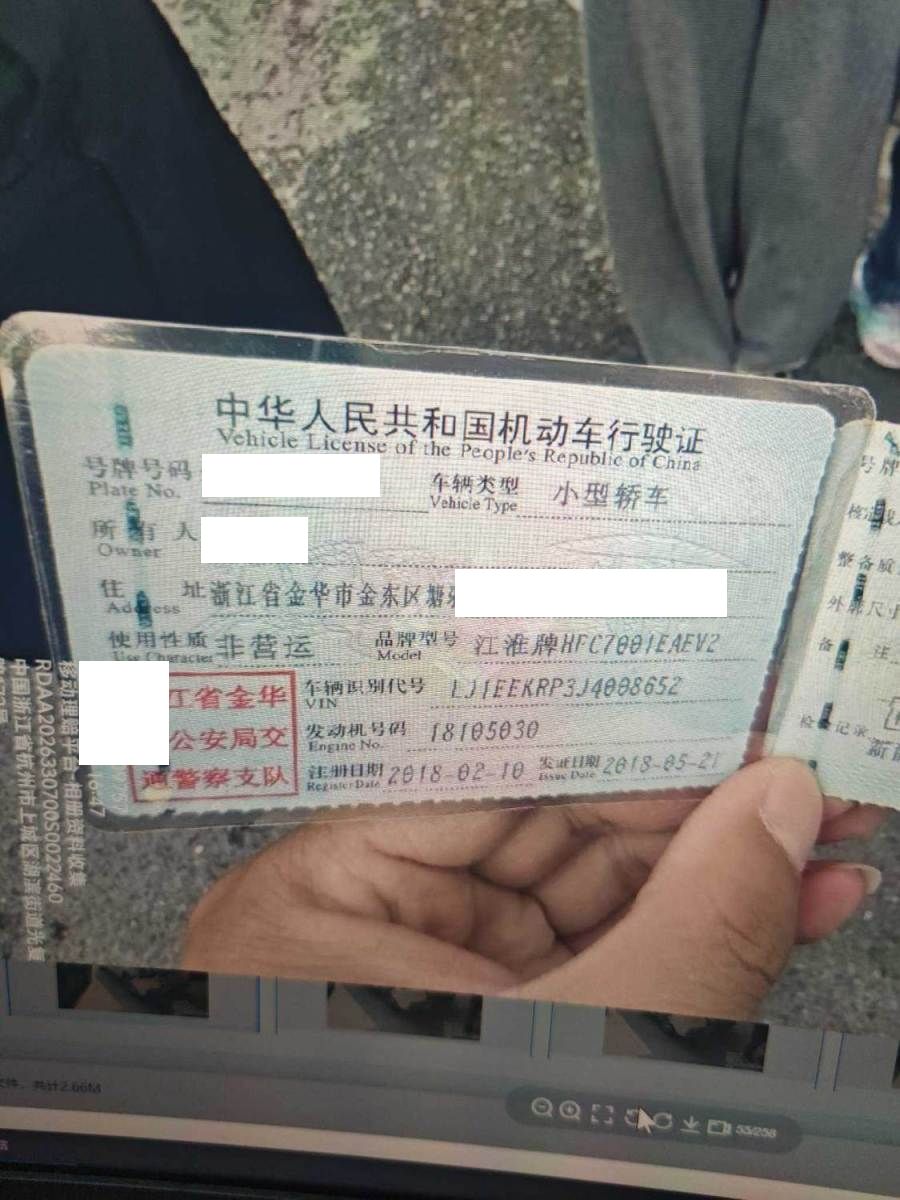 中华人民共和国机动车行驶证
Vehicle License of the People's Republic of China
号牌号码
Plate No.
车辆类型 小型轿车
Vehicle Type
所有人
Owner
住址 浙江省金华市金东区塘
Address
使用性质 非营运
Use Character
品牌型号 江淮牌HFC7001EAEV2
Model
江省金华
公安局交
通警察支队
车辆识别代号 LJ1EEKRP3J4008652
VIN
发动机号码 18105030
Engine No.
注册日期 2018-02-10
Register Date
发证日期 2018-05-21
Issue Date
号牌
整备质
外廓尺寸
备 注
检验记录
RDAA202633070S0022460
中国浙江省杭州市上城区
共计2.66
53/258